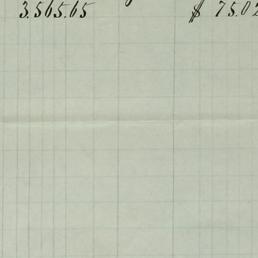 3,565.65 $ 75.02